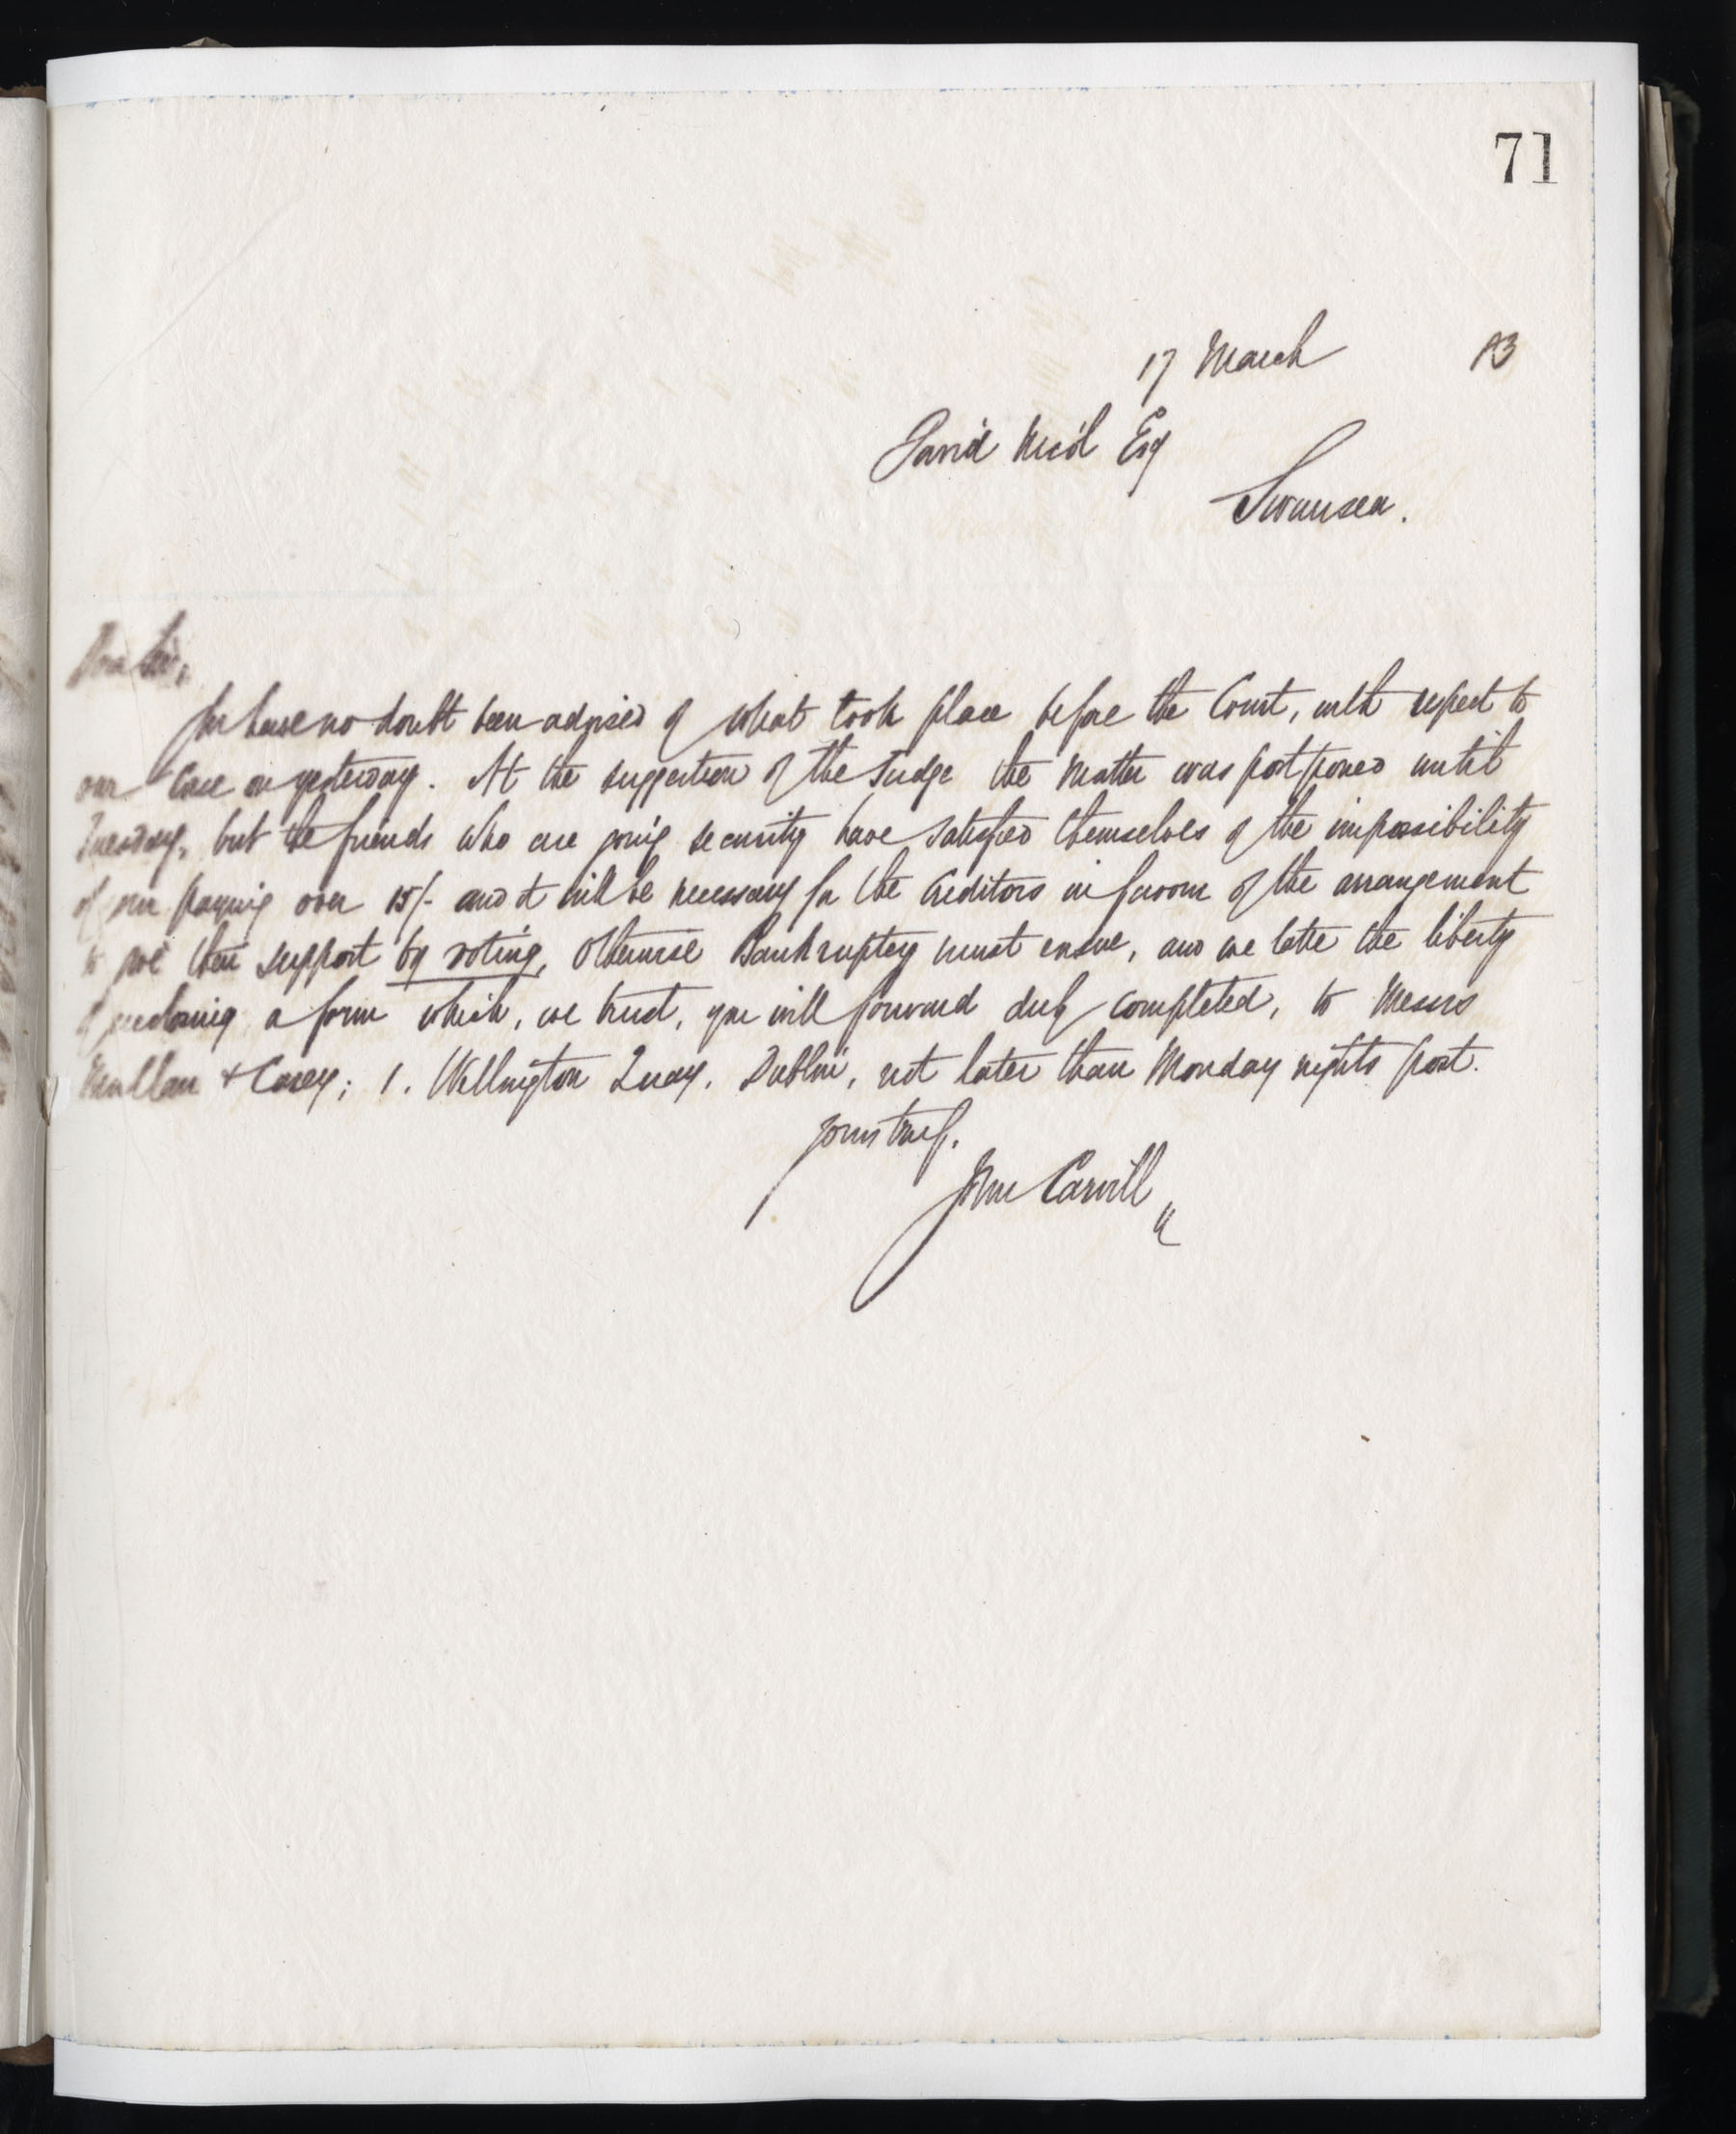 71
17 March 83
David Nicol Esq
Swansea.
Dear Sir,
You have no doubt been advised of what took place before the Court, with respect to
our Case on yesterday. At the suggestion of the Judge the Matter was postponed until
Tuesday, but the friends who are going security have satisfied themselves of the impossibility
of our paying over 15/- and it will be necessary for the Creditors in favour of the arrangement
to give their support by voting, otherwise Bankruptcy must ensue, and we take the liberty
of enclosing a form which, we trust, you will forward duly completed, to Messrs
Mullan & Casey; 1. Wellington Quay. Dublin, not later than Monday nights post.
Yours truly.
John Carvill